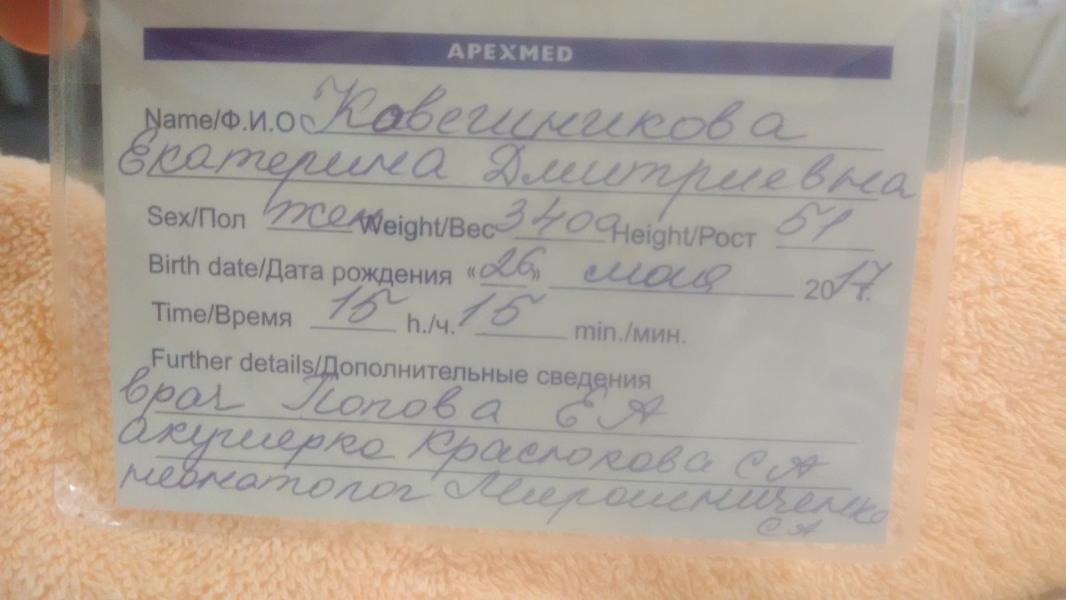 APEXMED
Name/Ф.И.О Кавешникова
Екатерина Дмитриевна
Sex/Пол жен Weight/Вес 3400 Height/Рост 51
Birth date/Дата рождения «26» мая 2017г.
Time/Время 15 h./ч. 15 min./мин.
Further details/Дополнительные сведения
врач Попова Е А
акушерка Краснокова С А
неонатолог Мирошниченко
С А